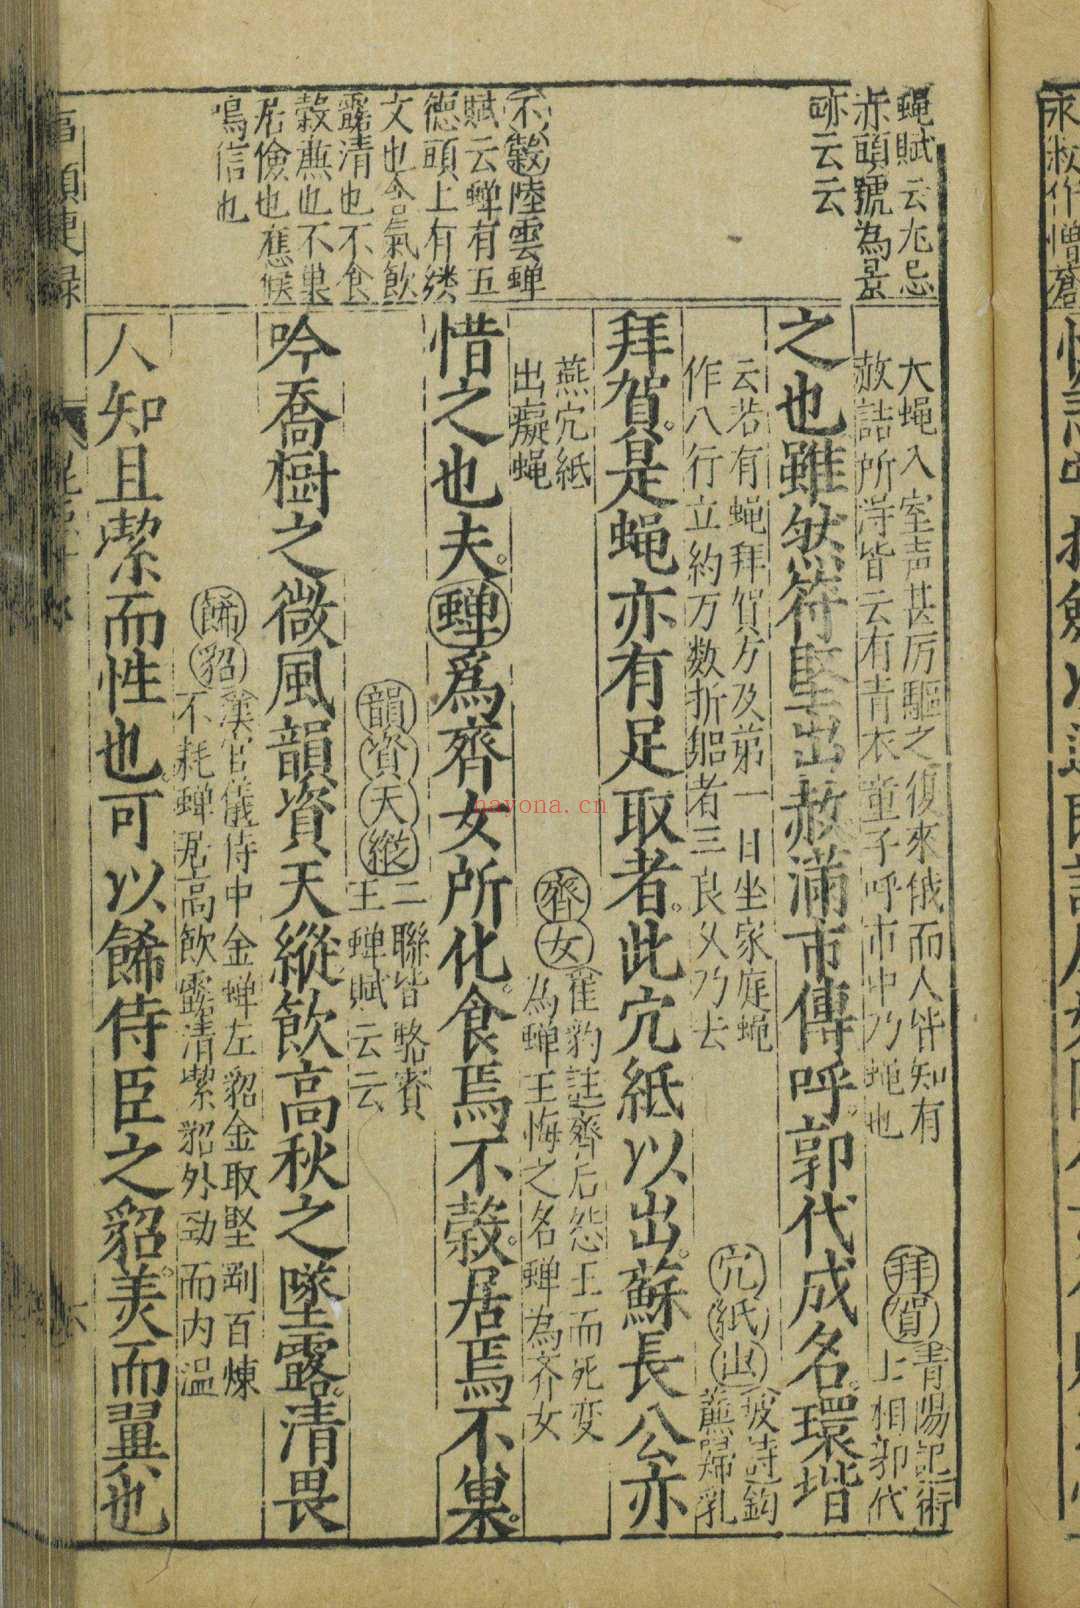 蝇賦云尤忌
赤頭號為景
跡云云
大蝇入室声甚厉驅之復來俄而人皆知有
赦詰所淂皆云有青衣童子呼市中乃蝇也
拜賀
青陽記術
上相郭代
之也雖然符堅出赦滿市傳呼郭代成名環堦
云若有蝇拜賀方及第一日坐家庭蝇
作八行立約万数折躯者三良久乃去
穴紙出
坡詩鈎
蕪歸乳
拜賀是蝇亦有足取者此穴紙以出蘇長公亦
燕穴紙
出癡蝇
齊女
崔豹註齊后怨王而死变
為蝉王悔之名蝉為齐女
不穀陸雲蝉
賦云蝉有五
德頭上有緌
文也含氣飲
露清也不食
穀蕪也不巢
居儉也應候
鳴信也
惜之也夫蝉爲齊女所化食焉不穀居焉不巢
韻資天縱
二聯皆駱賓
王蝉賦云云
吟喬樹之微風韻資天縱飲高秋之墜露清畏
餙貂
漢官儀侍中金蝉左貂金取堅剛百煉
不耗蝉居高飲露清潔貂外劲而内温
人知且潔而性也可以餙侍臣之貂美而翼也
六
hayona.cn